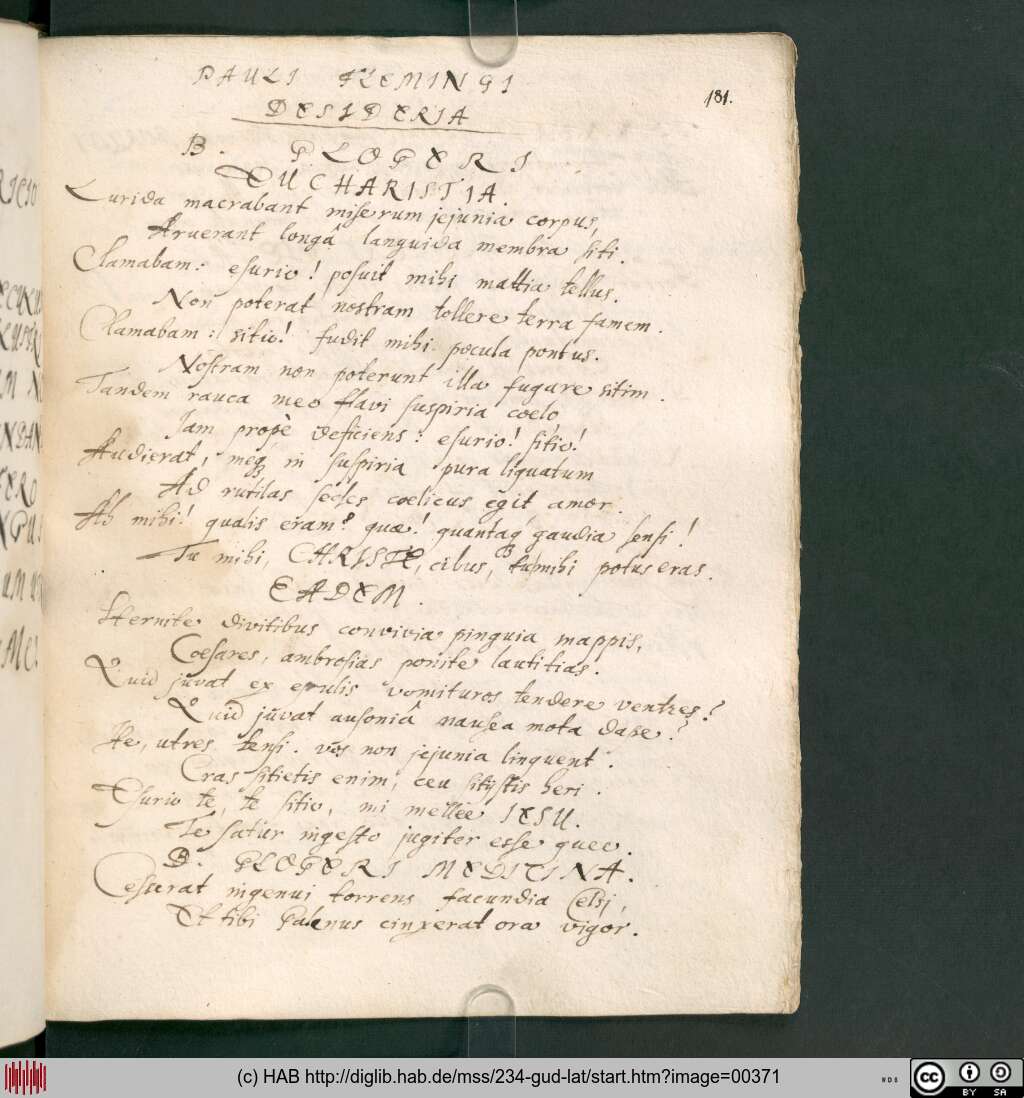 181.
PAULI FLEMINGI
DESIDERIA
B. GLOGERI
EUCHARISTIA.
Lurida macrabant miserum jejunia corpus,
Aruerant longâ languida membra siti.
Clamabam: esurio! posuit mihi mattia tellus.
Non poterat nostram tollere terra famem.
Clamabam: sitio! fudit mihi pocula pontus.
Nostram non poterunt illa fugare sitim.
Tandem rauca meo flavi suspiria coelo
Jam propè deficiens: esurio! sitio!
Audierat, meq́ in suspiria pura liquatum
Ad rutilas sedes coelicus egit amor.
Ah mihi! qualis eram? quae! quantaq́ gaudia sensi!
Tu mihi, CHRISTE, cibus, tu mihi potus eras.
EADEM.
Sternite divitibus convivia pinguia mappis,
Coesares, ambrosias ponite lautitias.
Quid juvat ex epulis vomituros tendere ventres?
Quid juvat ausoniâ nausea mota dape?
Ite, utres tensi. vos non jejunia linquent.
Cras sitietis enim, ceu sitijstis heri.
Esurio te, te sitio, mi mellee JESU.
Te satur ingesto jugiter esse queo.
B. GLOGERI MEDICINA.
Cesserat ingenui torrens facundia Celsi,
Et tibi Galenus cinxerat ora vigor.
(c) HAB http://diglib.hab.de/mss/234-gud-lat/start.htm?image=00371
WDB
cc BY SA